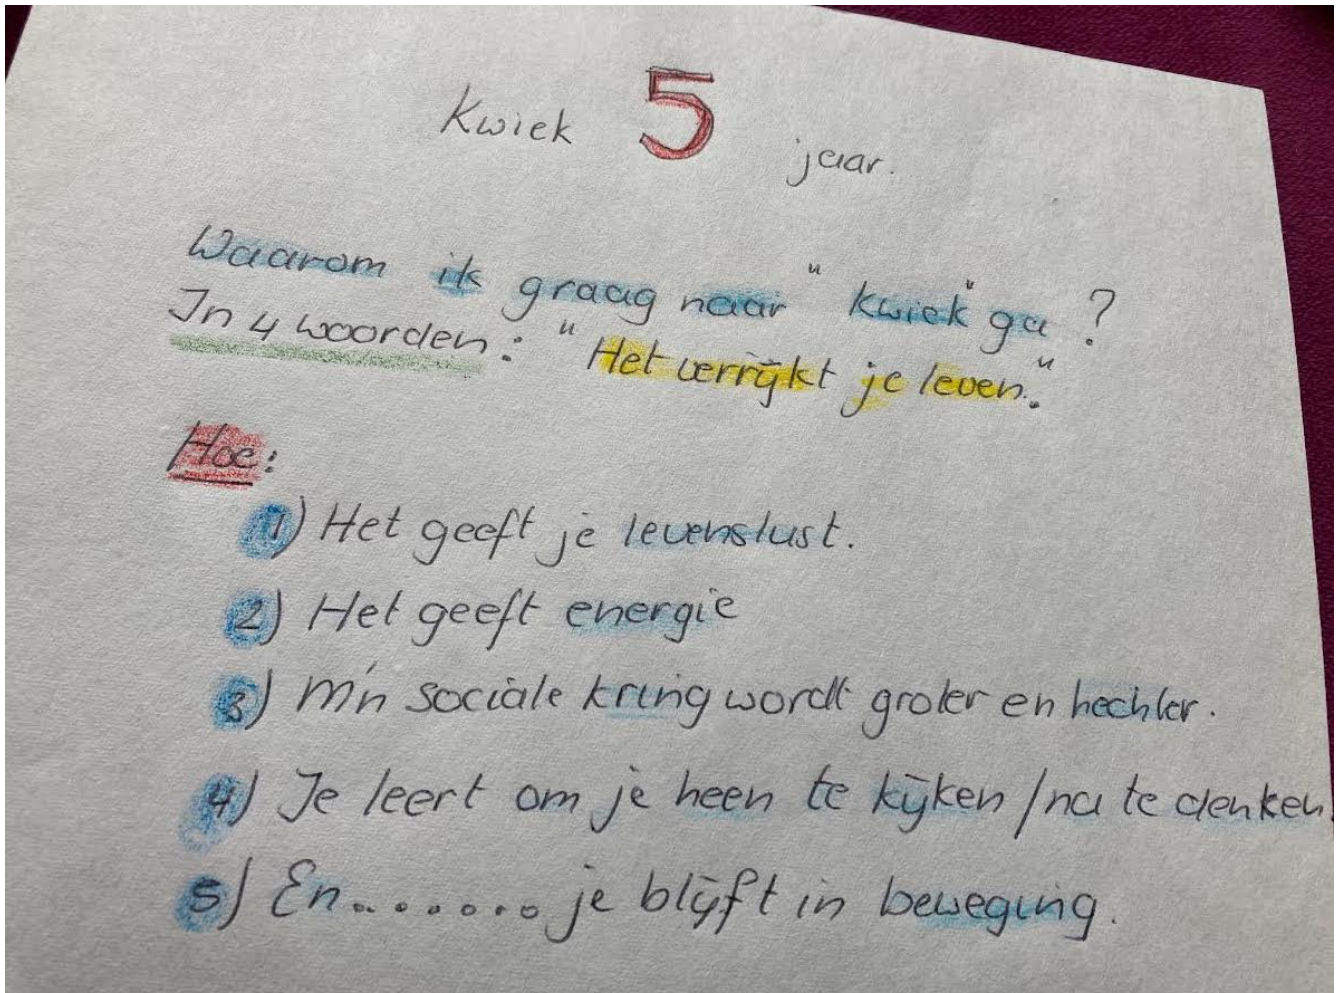 Kwiek 5 jaar.
Waarom ik graag naar "Kwiek" ga ?
In 4 woorden : "Het verrijkt je leven."
Hoe:
1) Het geeft je levenslust.
2) Het geeft energie
3) M'n sociale kring wordt groter en hechter.
4) Je leert om je heen te kijken / na te denken
5) En....... je blijft in beweging.